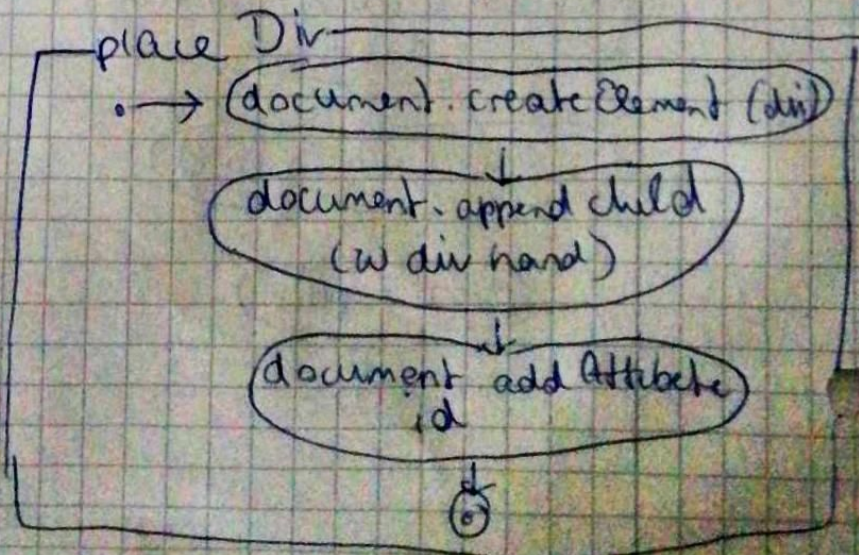 place Div
document.createElement (div)
document.append child
(w div hand)
document add Attribute
id